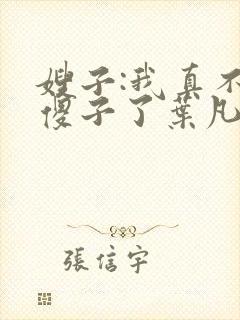 嫂子:我真不
傻子了葉凡
張信宇